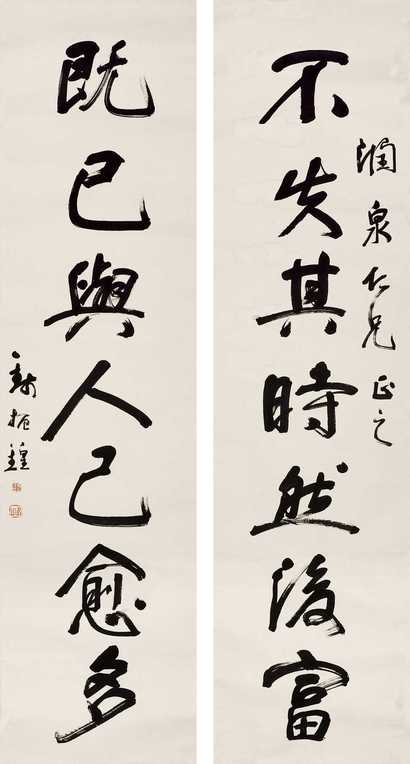 潤泉仁兄正之
不失其時然後富
既已與人己愈多
錢振鍠